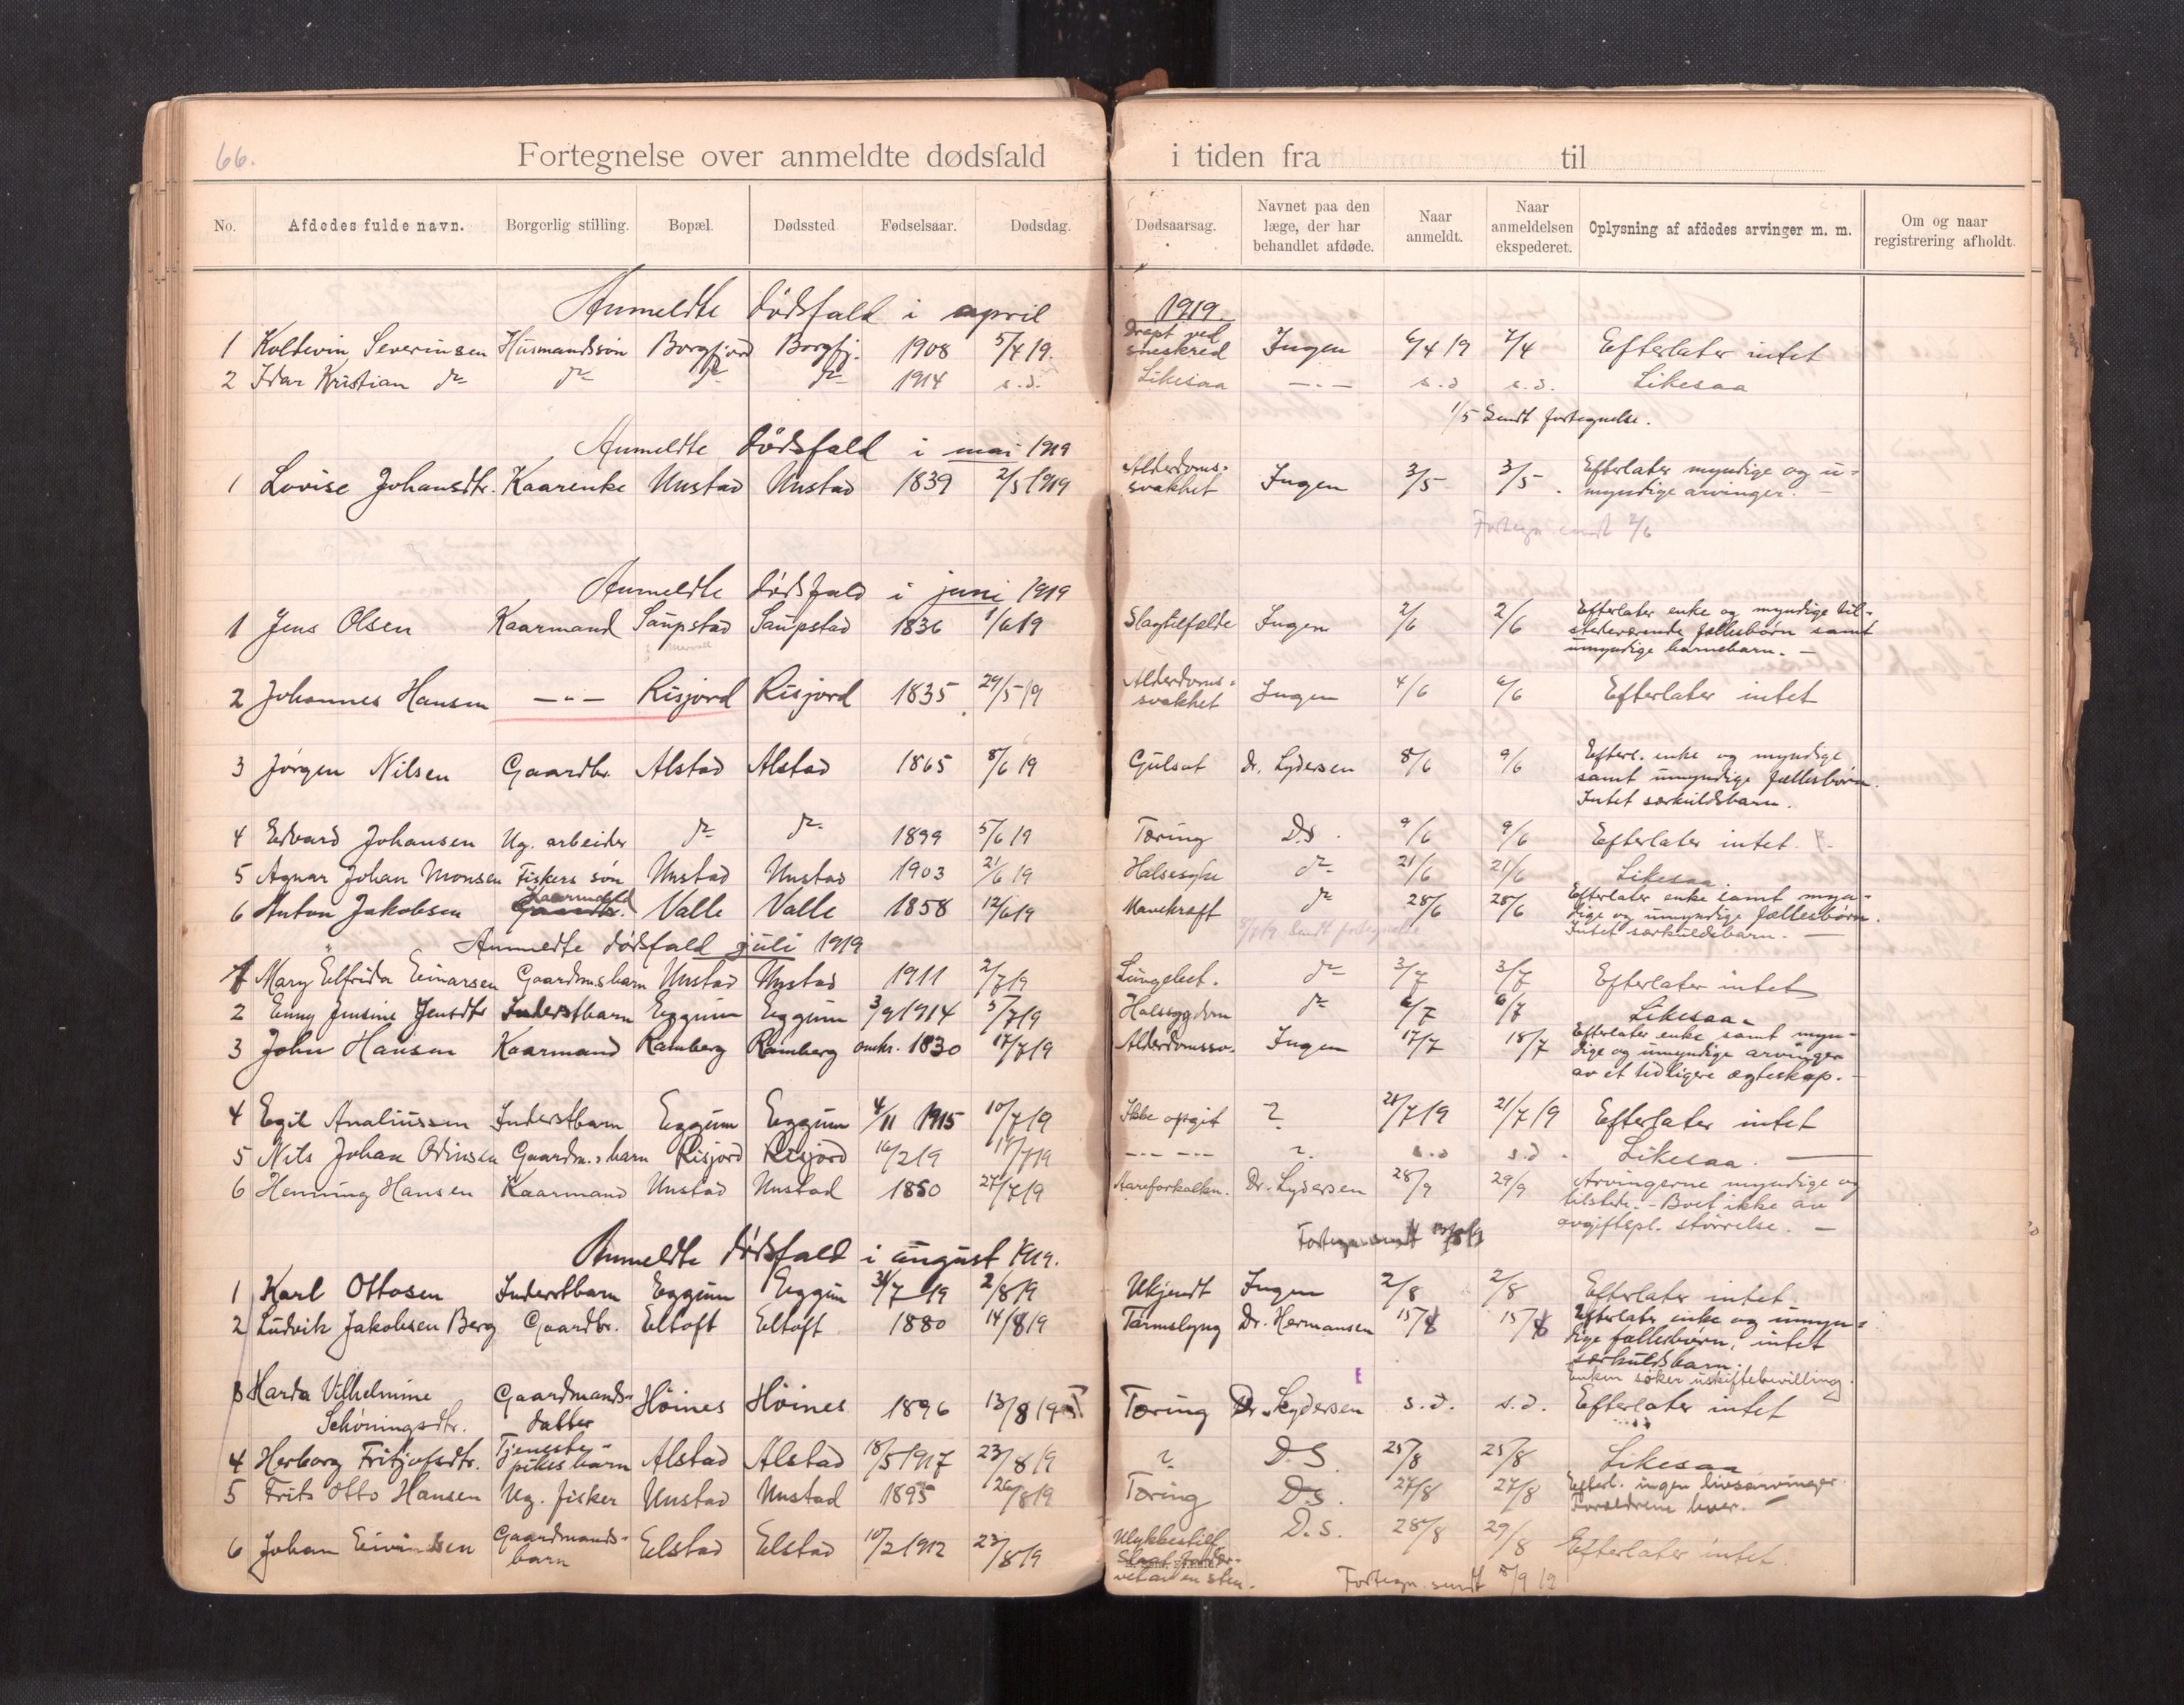 66.
Fortegnelse over anmeldte dødsfald i tiden fra til
No. Afdødes fulde navn. Borgerlig stilling. Bopæl. Dødssted Fødselsaar. Dødsdag. Dødsaarsag. Navnet paa den læge, der har behandlet afdøde. Naar anmeldt. Naar anmeldelsen ekspederet. Oplysning af afdødes arvinger m. m. Om og naar registrering afholdt.
Anmeldte dødsfald i april 1919.
1 Koldevin Severinsen Husmandssøn Borgfjord Borgfj. 1908 5/4 19. Dræpt ved sneskred Ingen 6/4 19 7/4 Efterlater intet
2 Idar Kristian do do do do 1914 s.d. Likesaa —"— s.d s.d. Likesaa
1/5 Sendt fortegnelse.
Anmeldte dødsfald i mai 1919
1 Lovise Johansdtr. Kaarenke Unstad Unstad 1839 2/5 1919 Alderdoms- svakhet Ingen 3/5 3/5. Efterlater myndige og u-
myndige arvinger. —
Fortegn. sendt 2/6
Anmeldte dødsfald i juni 1919
1 Jens Olsen Kaarmand Saupstad Saupstad 1836 1/6 19 Slagtilfælde Ingen 2/6 2/6 Efterlater enke og myndige til-
stedeværende fællesbørn samt
umyndige barnebarn. —
2 Johannes Hansen —"— Risjord Risjord 1835 29/5 19 Alderdoms- svakhet Ingen 4/6 6/6 Efterlater intet
3 Jørgen Nilsen Gaardbr. Alstad Alstad 1865 8/6 19 Gulsot dr. Lydersen 8/6 9/6 Efterl. enke og myndige
samt umyndige fællesbørn.
Intet særkuldsbarn.
4 Edvard Johansen Ug. arbeider do do 1899 5/6 19 Tæring D.s. 9/6 9/6 Efterlater intet.
5 Agnar Johan Monsen Fiskers søn Unstad Unstad 1903 21/6 19 Halssyke do 21/6 21/6 Likesaa.
6 Anton Jakobsen Kaarmand Valle Valle 1858 12/6 19 Mavekræft do 28/6 28/6 Efterlater enke samt myn-
dige og umyndige fællesbørn.
Intet særkuldsbarn. —
Sendt fortegnelse
Anmeldte dødsfald juli 1919
1 Mary Elfrida Einarsen Gaardmsbarn Unstad Unstad 1911 2/7 19 Lungebet. do 3/7 3/7 Efterlater intet
2 Enny Jensine Jensdtr Inderstbarn Eggum Eggum 3/9 1914 5/7 19 Halssygdom do 6/7 6/7 Likesaa
3 John Hansen Kaarmand Ramberg Ramberg omkr. 1830 17/7 19 Alderdomssv. Ingen 17/7 18/7 Efterlater enke samt myn-
dige og umyndige arvinger
av et tidligere ægteskap. —
4 Egil Analiussen Inderstbarn Eggum Eggum 4/11 1915 10/7 19 Ikke opgit ? 21/7 19 21/7 19 Efterlater intet
5 Nils Johan Odinsen Gaardm.s barn Risjord Risjord 16/2 19 /7 19 —"— —"— ? s.d s.d. Likesaa. —
6 Henning Hansen Kaarmand Unstad Unstad 1850 27/7 19 Aareforkalkn. Dr. Lydersen 28/9 29/9 Arvingerne myndige og
tilstede. – Boet ikke av
avgiftspl. størrelse. —
Fortegn. sendt
Anmeldte dødsfald i august 1919.
1 Karl Ottosen Inderstbarn Eggum Eggum 31/7 19 2/8 19 Ukjendt Ingen 2/8 2/8 Efterlater intet
2 Ludvik Jakobsen Berg Gaardbr. Eltoft Eltoft 1880 14/8 19 Tarmslyng Dr. Hermansen 15/8 15/8 Efterlater enke og umyn-
dige fællesbørn, intet
særkuldsbarn.
Enken søker uskiftebevilling.
3 Harda Vilhelmine Schøningsdtr. Gaardmands- datter Höines Höines 1896 13/8 19 Tæring Dr. Lydersen s.d. s.d. Efterlater intet
4 Herborg Fritjofsdtr. Tjeneste- pikes barn Alstad Alstad 18/5 1917 23/8 19 ? D.S. 25/8 25/8 Likesaa
5 Frits Otto Hansen Ug. fisker Unstad Unstad 1895 26/8 19 Tæring D.S. 27/8 27/8 Efterl. ingen livsarvinger.
Forældrene lever. —
6 Johan Eivindsen Gaardmands- barn Elstad Elstad 10/2 1912 23/8 19 Ulykkestilf. D.S. 28/8 29/8 Efterlater intet.
vet av en sten.
Fortegn. sendt /9 19